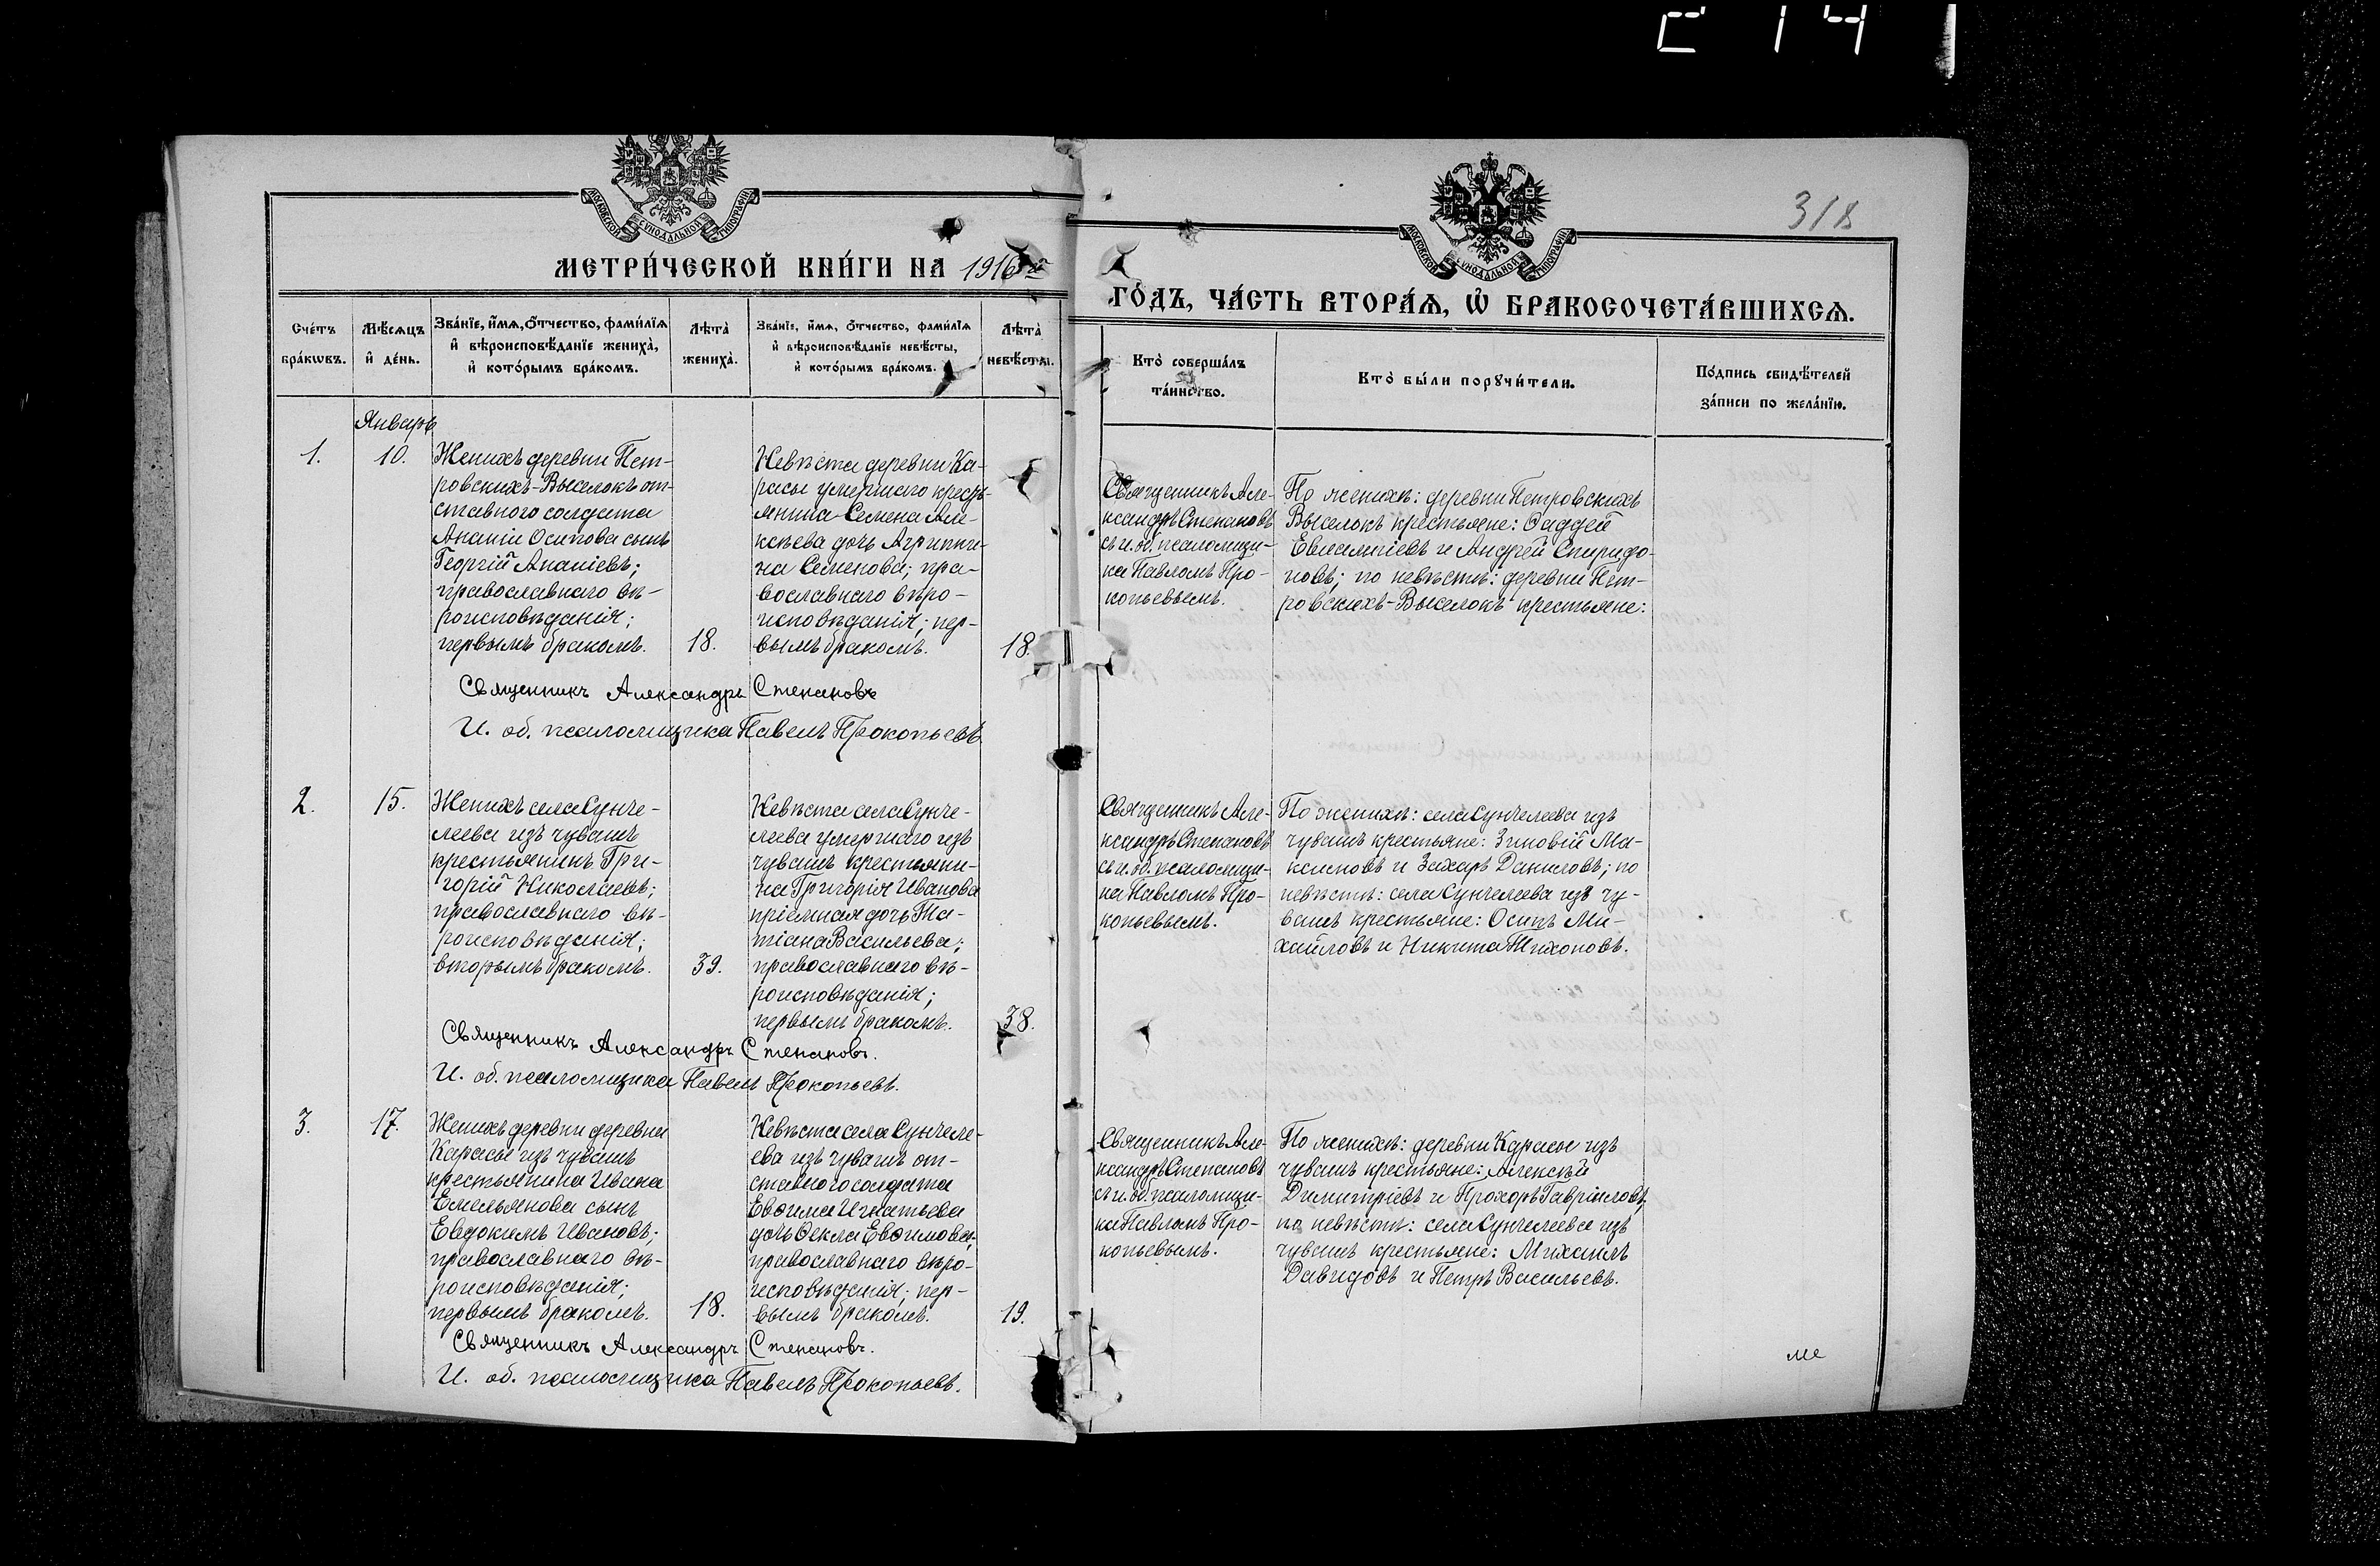 С 14
318
МОСКОВСКОЙ СѴНОДАЛЬНОЙ ТИПОГРАФІИ
МОСКОВСКОЙ СѴНОДАЛЬНОЙ ТИПОГРАФІИ
МЕТРИ́ЧЕСКОЙ КНИ́ГИ НА 1916й
ГО́ДЪ, ЧА́СТЬ ВТОРА́Я, Ѡ БРАКОСОЧЕТА́ВШИХСЯ.
Сче́тъ
бра́кѡвъ.
Мѣ́сяцъ
и҆ де́нь.
Зва́нїе, и҆́мя, о҆́тчество, фами́лїя
и҆ вѣроисповѣ́данїе жениха̀,
и҆ кото́рымъ бра́комъ.
Лѣта̀
жениха̀.
Зва́нїе, и҆́мя, о҆́тчество, фами́лїя
и҆ вѣроисповѣ́данїе невѣ́сты,
и҆ кото́рымъ бра́комъ.
Лѣта̀
невѣ́сты.
Кто̀ соверша́лъ
та́инство.
Кто̀ бы́ли порꙋчи́тели.
По́дпись свидѣ́телей
за́писи по жела́нїю.
Январь
1.
10.
Женихъ деревни Пет-
ровскихъ-Выселокъ от-
ставного солдата
Ананіи Осипова сынъ
Георгій Ананіевъ;
православнаго вѣ-
роисповѣданія;
первымъ бракомъ.
18.
Невѣста деревни Ка-
расы умершаго кресть-
янина Семена Але-
ксѣева дочь Агриппи-
на Семенова; пра-
вославнаго вѣро-
исповѣданія; пер-
вымъ бракомъ.
18.
Священникъ Але-
ксандръ Степановъ
съ и. об. псаломщи-
ка Павломъ Про-
копьевымъ.
По женихѣ: деревни Петровскихъ
Выселокъ крестьяне: Ѳаддей
Евлампіевъ и Андрей Спиридо-
новъ; по невѣстѣ: деревни Пет-
ровскихъ-Выселокъ крестьяне:
Священникъ Александръ Степановъ
И. об. псаломщика Павелъ Прокопьевъ
2.
15.
Женихъ села Сунче-
леева изъ чувашъ
крестьянинъ Гри-
горій Николаевъ;
православнаго вѣ-
роисповѣданія;
вторымъ бракомъ.
39.
Невѣста села Сунче-
леева умершаго изъ
чувашъ крестьяни-
на Григорія Иванова
пріемная дочь Та-
тіана Васильева;
православнаго вѣ-
роисповѣданія;
первымъ бракомъ.
38.
Священникъ Але-
ксандръ Степановъ
съ и. об. псаломщи-
ка Павломъ Про-
копьевымъ.
По женихѣ: села Сунчелеева изъ
чувашъ крестьяне: Зиновій Ма-
ксимовъ и Захаръ Даниловъ; по
невѣстѣ: села Сунчелеева изъ чу-
вашъ крестьяне: Осипъ Ми-
хайловъ и Никита Тихоновъ.
Священникъ Александръ Степановъ.
И. об. псаломщика Павелъ Прокопьевъ.
3.
17.
Женихъ деревни деревни
Карасы изъ чувашъ
крестьянина Ивана
Емельянова сынъ
Евдокимъ Ивановъ;
православнаго вѣ-
роисповѣданія;
первымъ бракомъ.
18.
Невѣста села Сунчеле-
ева изъ чувашъ от-
ставного солдата
Евѳима Игнатьева
дочь Ѳекла Евѳимова;
православнаго вѣро-
исповѣданія; пер-
вымъ бракомъ.
19.
Священникъ Але-
ксандръ Степановъ
съ и. об. псаломщи-
ка Павломъ Про-
копьевымъ.
По женихѣ: деревни Карасы изъ
чувашъ крестьяне: Алексѣй
Димитріевъ и Прохоръ Гавріиловъ;
по невѣстѣ: села Сунчелеева изъ
чувашъ крестьяне: Михаилъ
Давидовъ и Петръ Васильевъ.
Священникъ Александръ Степановъ.
И. об. псаломщика Павелъ Прокопьевъ.
ме